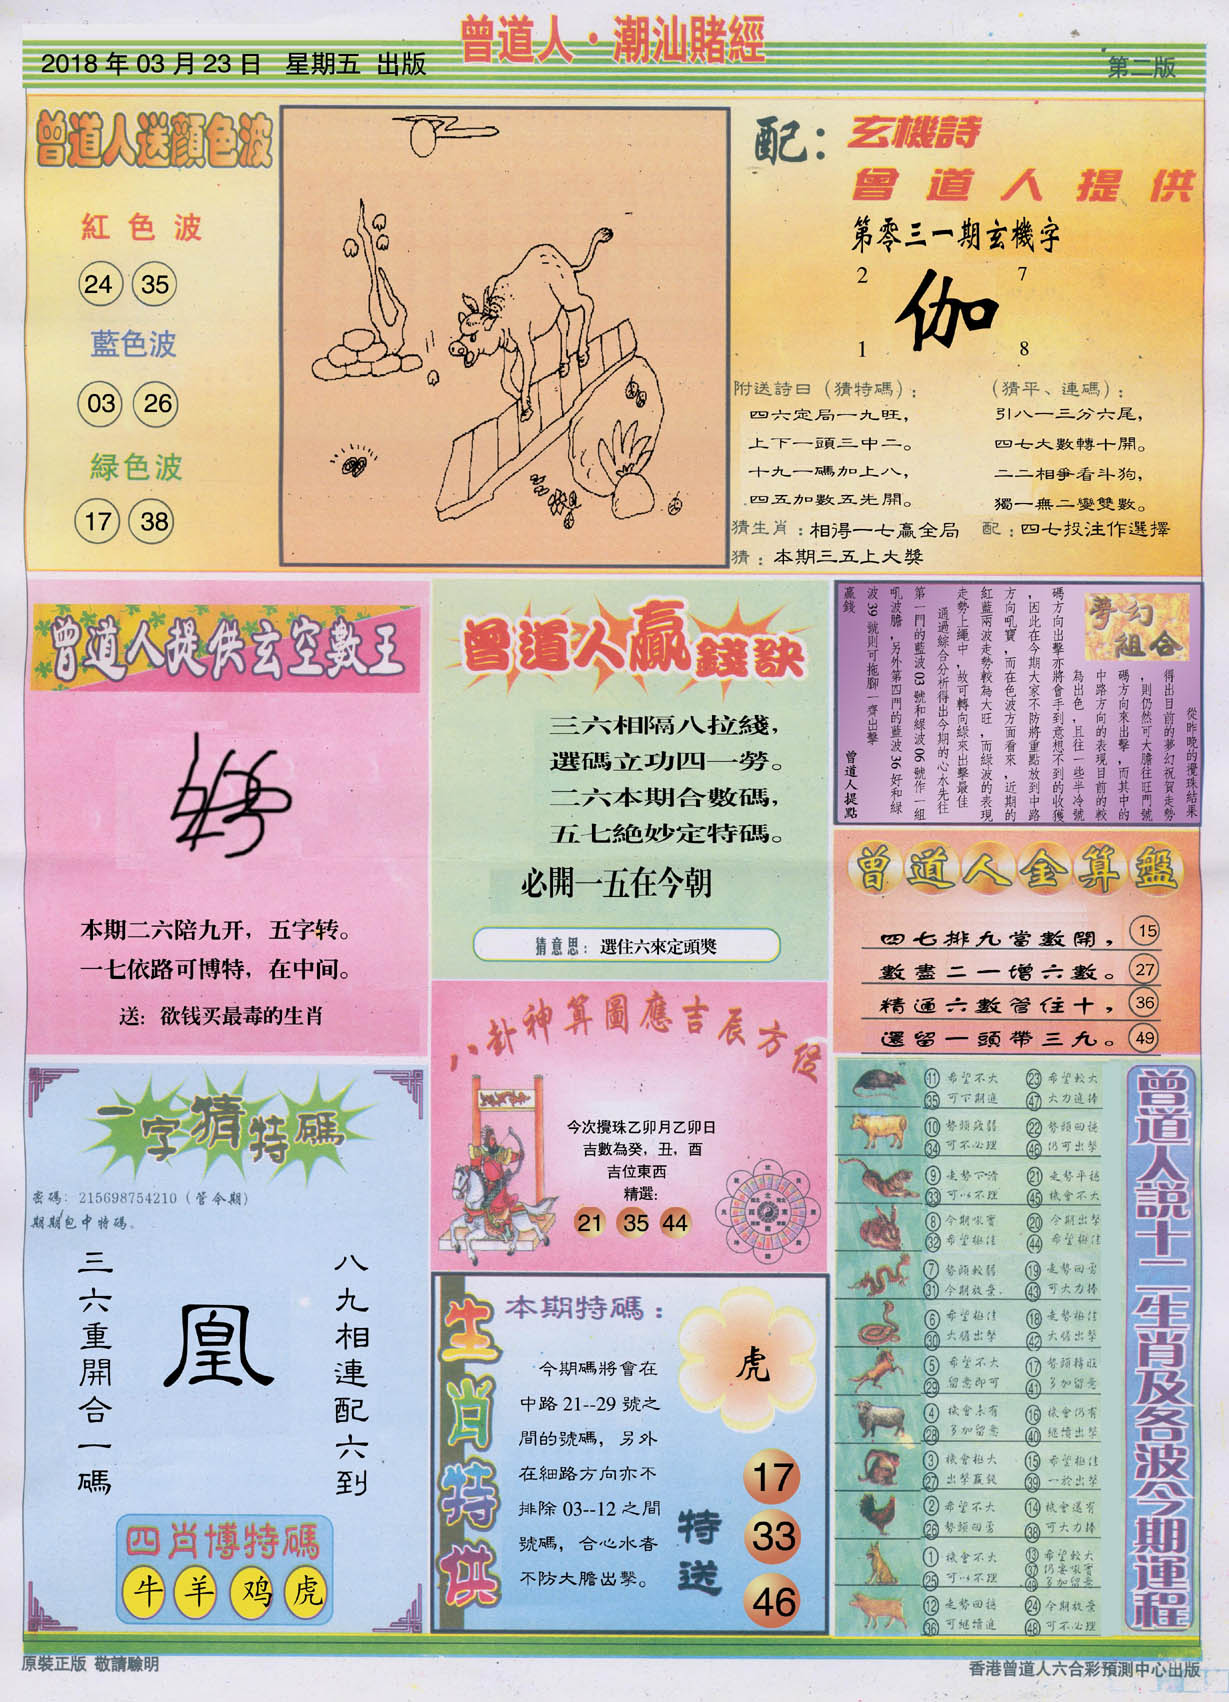 曾道人·潮汕賭經
2018 年 03 月 23 日 星期五 出版
第二版
曾道人送顏色波
紅色波
24 35
藍色波
03 26
緑色波
17 38
配：玄機詩
曾道人提供
第零三一期玄機字
2 7
伽
1 8
附送詩曰（猜特碼）：
四六定局一九旺，
上下一頭三中二。
十九一碼加上八，
四五加數五先開。
（猜平、連碼）：
引八一三分六尾，
四七大數轉十開。
二二相爭看斗狗，
獨一無二變雙數。
猜生肖：相得一七贏全局
配：四七投注作選擇
猜：本期三五上大獎
曾道人提供玄空數王
本期二六陪九开，五字转。
一七依路可博特，在中间。
送：欲钱买最毒的生肖
曾道人贏錢訣
三六相隔八拉綫，
選碼立功四一勞。
二六本期合數碼，
五七絕妙定特碼。
必開一五在今朝
猜意思：選住六來定頭獎
夢幻組合
從昨晚的攪珠結果
得出目前的夢幻祝賀走勢
，則仍然可大膽往旺門號
碼方向來出擊，而其中的
中路方向的表現目前的較
為出色，且往一些半冷號
碼方向出擊亦將會手到意想不到的收獲
，因此在今期大家不防將重點放到中路
方向吼寶，而在色波方面看來，近期的
紅藍兩波走勢較為大旺，而綠波的表現
走勢上繩中，故可轉向綠來出擊最佳
通過綜合分析得出今期的心水先往
第一門的藍波 03 號和綠波 06 號作一組
吼波膽，另外第四門的藍波 36 好和綠
波 39 號則可拖腳一齊出擊
贏錢
曾道人提點
曾道人金算盤
四七排九當數開， 15
數盡二一增六數。 27
精通六數管住十， 36
還留一頭帶三九。 49
八卦神算圖應吉辰方位
今次攪珠乙卯月乙卯日
吉數為癸，丑，酉
吉位東西
精選：
21 35 44
一字猜特碼
密碼：215698754210（管令期）
期期包中特碼。
八九相連配六到
凰
三六重開合一碼
四肖博特碼
牛 羊 鸡 虎
生肖特供
本期特碼：
今期碼將會在
中路 21--29 號之
間的號碼，另外
在細路方向亦不
排除 03--12 之間
號碼，合心水者
不防大膽出擊。
虎
特送
17
33
46
曾道人説十二生肖及各波今期運程
11 希望不大 23 希望較大
35 可下期進 47 大力追捧
10 勢頭疲弱 22 勢頭回穩
34 可不必理 46 仍可出擊
9 走勢下滑 21 走勢平穩
33 可以不理 45 機會不大
8 今期吼寶 20 今期出擊
32 希望極佳 44 希望極佳
7 勢頭較弱 19 走勢回勇
31 今期放棄 43 可大力捧
6 希望極佳 18 走勢極佳
30 大膽出擊 42 大膽出擊
5 希望不大 17 勢頭轉旺
29 留意即可 41 多加留意
4 機會未有 16 機會仍有
28 多加留意 40 繼續出擊
3 機會極大 15 希望極佳
27 出擊贏錢 39 一於出擊
2 希望不大 14 機會還有
26 勢頭回勇 38 可大力捧
1 機會不大 13 希望較大
25 可以不理 37 仍要吼寶
49 多加留意
12 走勢回穩 24 今期放棄
36 可繼續進 48 可不必理
原裝正版 敬請驗明
香港曾道人六合彩預測中心出版